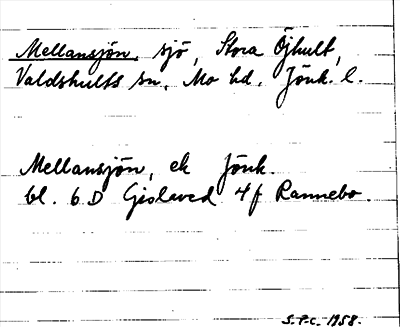 Mellansjön, sjö, Stora Öjhult,
Valdshults sn, Mo hd. Jönk. l.
Mellansjön, ek Jönk.
bl. 6 D Gislaved 4f Rannebo.
S.P-C. 1958.